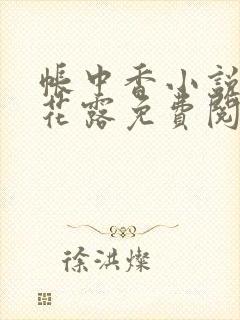 帐中香小説
花露免費閱
徐洪燦